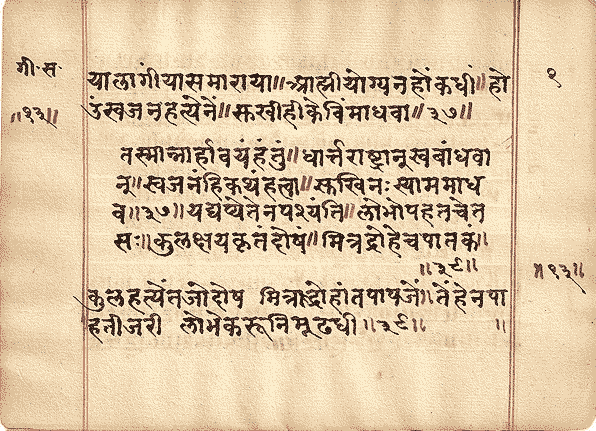 गी॰स॰
१
॥१३॥
यालागीं या समाराया॥ आह्मी योग्य नहों कधीं॥ हो
उं स्वजनहत्येनें॥ सुखी ही केविं माधवा॥३७॥
तस्मान्नार्हा वयं हंतुं॥ धार्त्तराष्ट्रान्स्वबांधवा
न्॥ स्वजनं हि कथं हत्वा॥ सुखिनः स्याम माध
व॥३७॥ यद्यप्येते न पश्यंति॥ लोभोपहतचेत
सः॥ कुलक्षयकृतं दोषं॥ मित्रद्रोहे च पातकं॥
॥३८॥
॥१३॥
कुलहत्येंत जो दोष मित्राद्रोहांत पाप जें॥ तें हे न पा
हती जरी लोभेकरूनि मुढधी॥३८॥ ॥